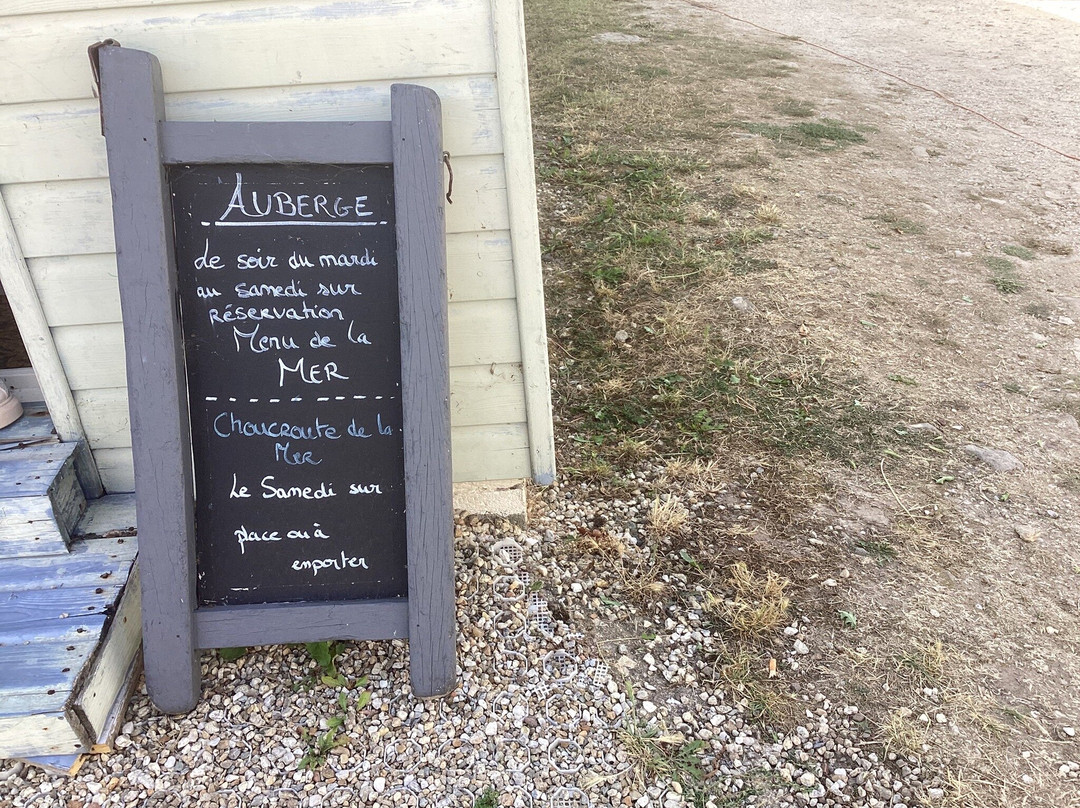 AUBERGE
Le soir du mardi
au samedi sur
réservation
Menu de la
MER
Choucroute de la
Mer
Le Samedi sur
place ou à
emporter